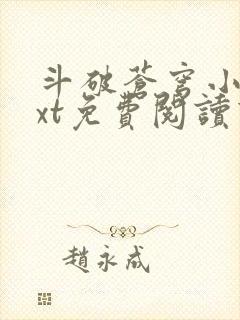 斗破蒼穹小
xt免費閱讀
趙永成